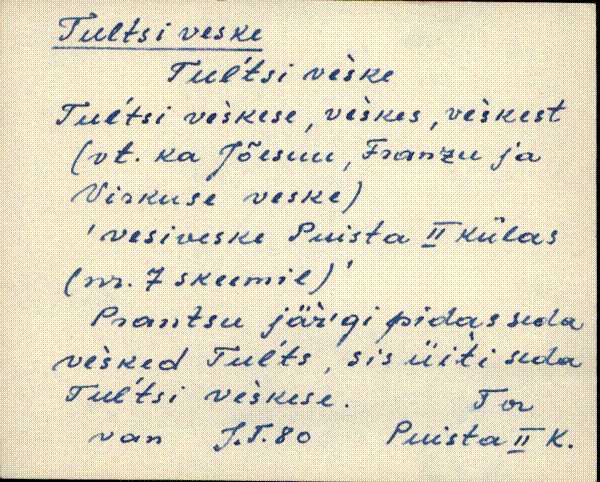 Tultsi veske
Tul'tsi vèske
Tul'tsi vèskese, vèskes, vèskest
(vt. ka Jõesuu, Franzu ja
Virkuse veske)
'vesiveske Puista II külas
(nr. 7 skeemil)'
Prantsu jär'gi pidas seda
vèsked Tul'ts, sis üiti seda
Tul'tsi vèskese. Tor
van J.T.80 Puista II K.